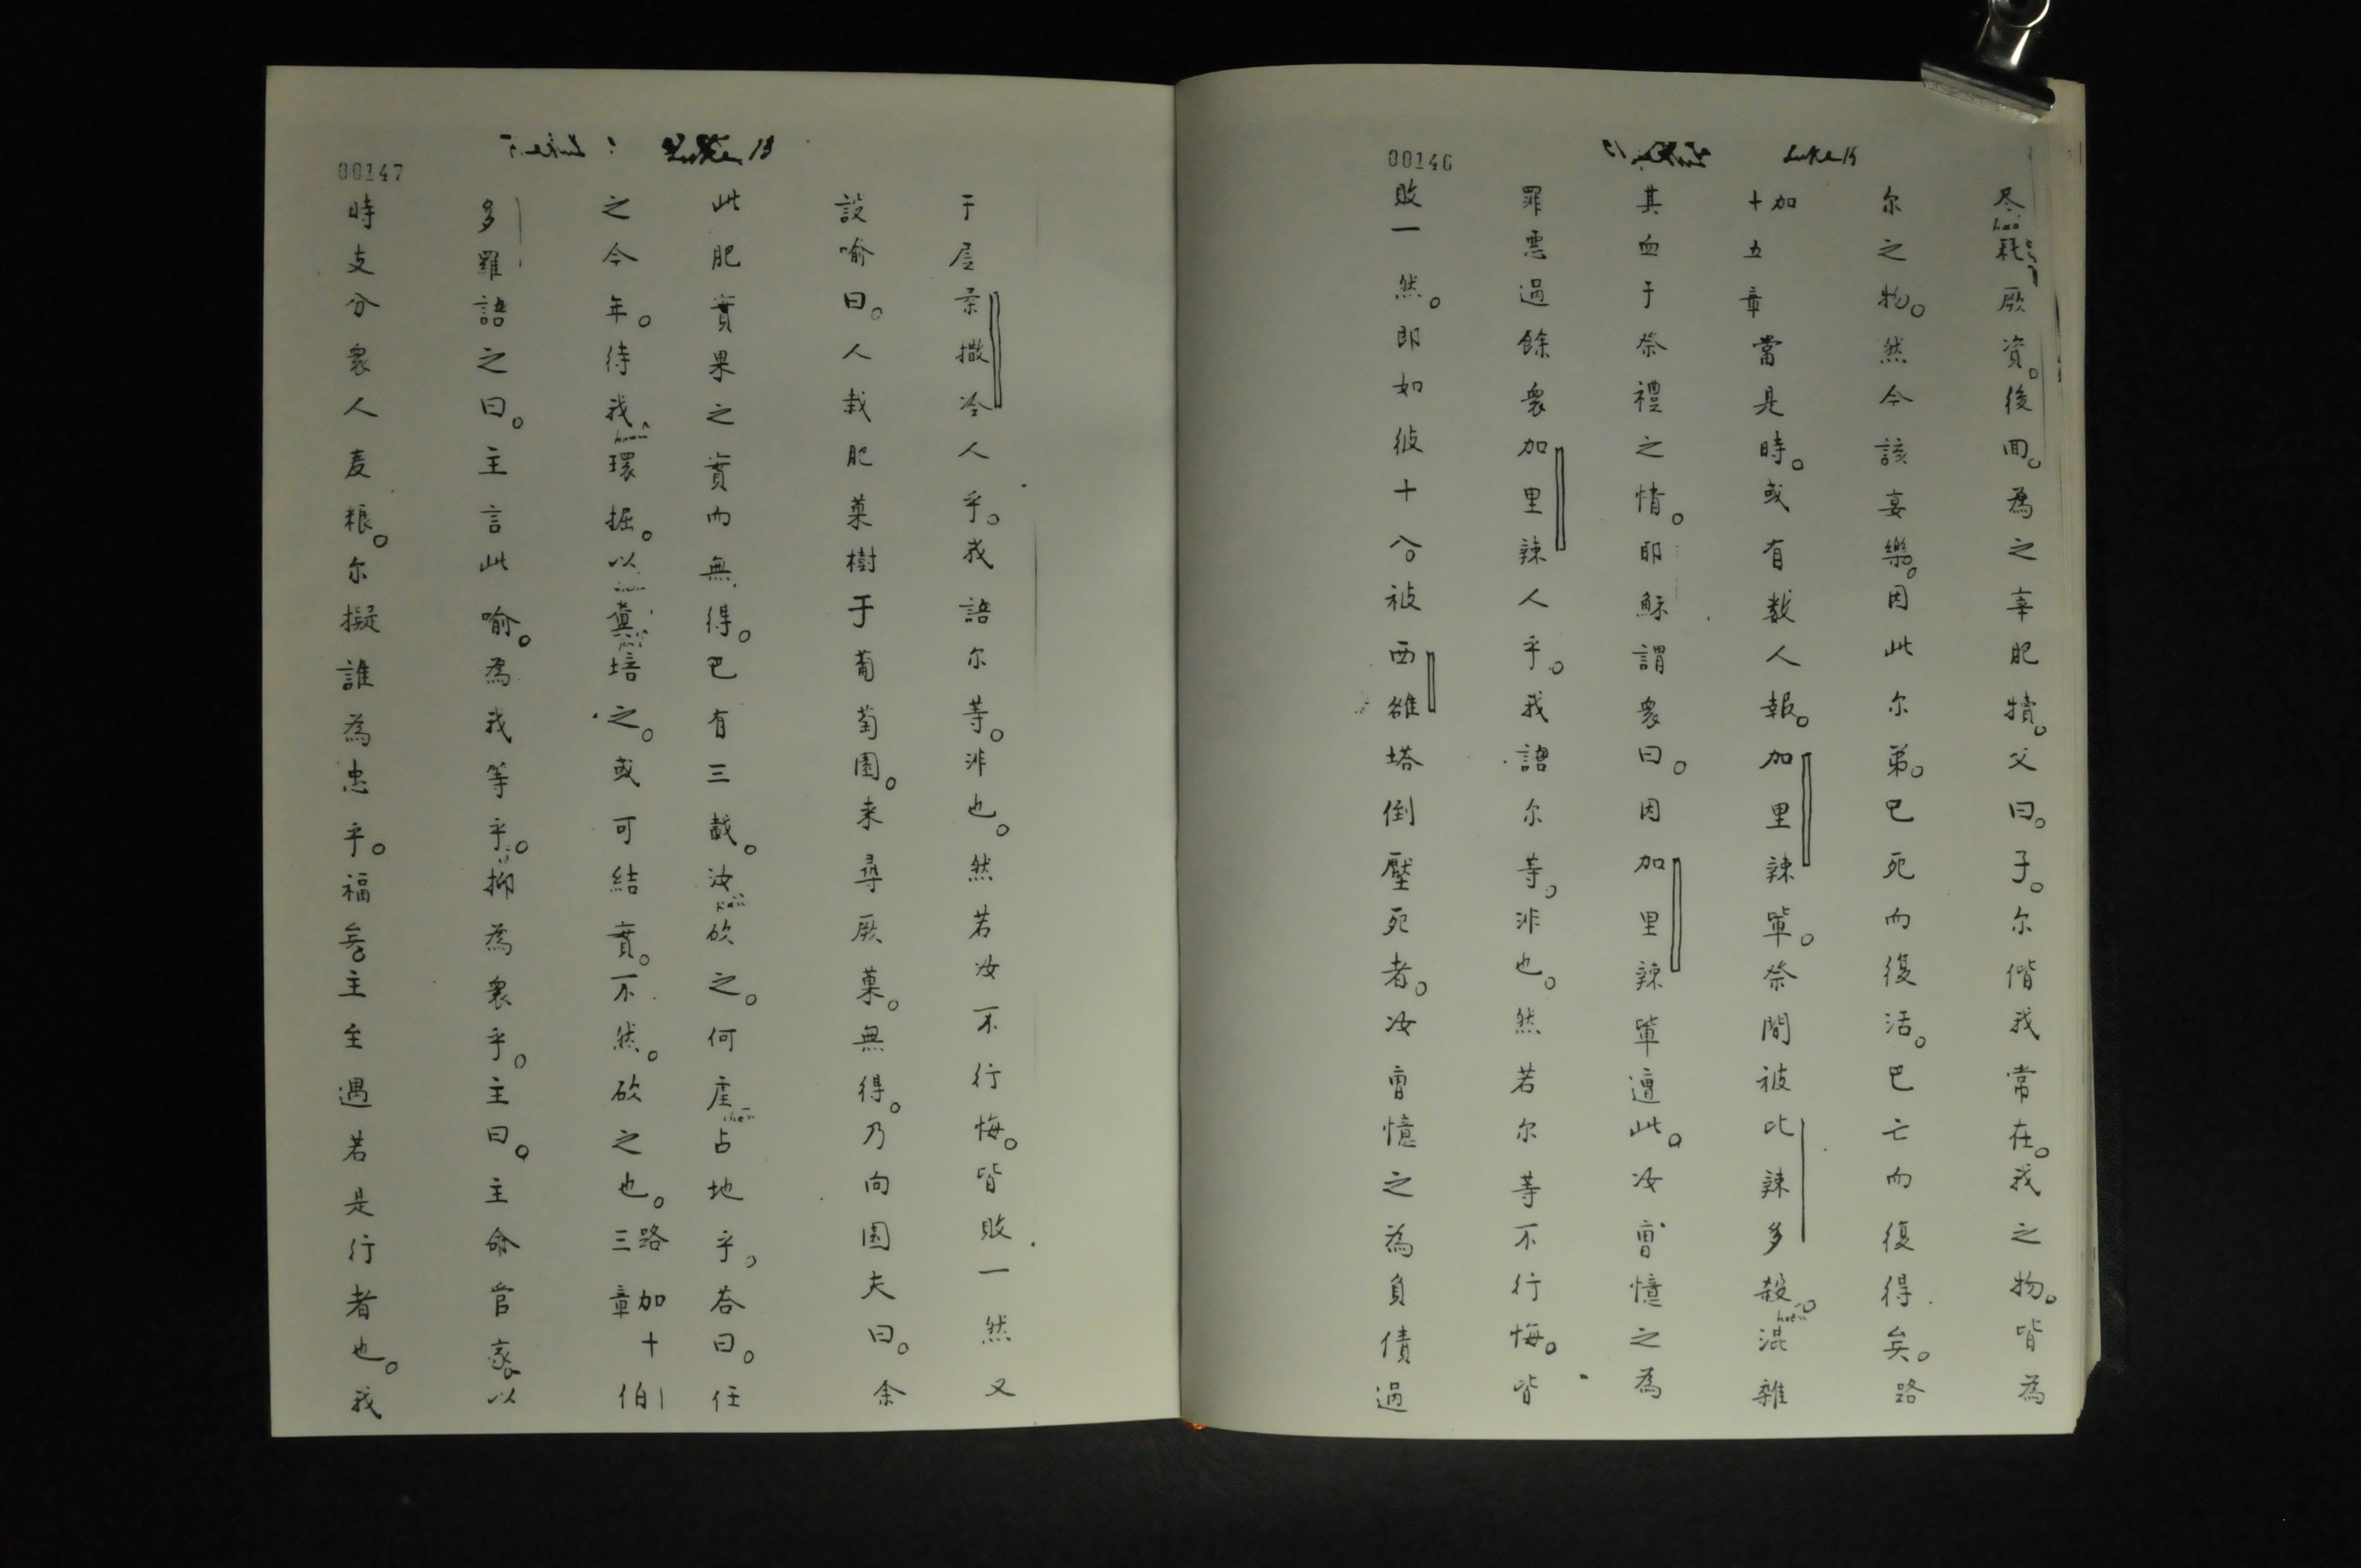 Luke 15
00146
尽耗厥資。後面。為之宰肥犢。父曰。子。尔偕我常在。我之物。皆為
尔之物。然今該宴樂。因此尔弟。巳死而復活。巳亡而復得矣。路
加十五章當是時。或有数人報。加里辣軰。祭間被比辣多殺。混雑
其血于祭禮之情。耶穌謂衆曰。因加里辣軰遭此。汝曽憶之為
罪悪過餘衆加里辣人乎。我語尔等。非也。然若尔等不行悔。皆
敗一然。即如彼十八。被西雒塔倒壓死者。汝曽憶之為負債過
Luke 13
00147
于居柔撒冷人乎。我語尔等。非也。然若汝不行悔。皆敗一然又
設喻曰。人栽肥菓樹于葡萄園。来尋厥菓。無得。乃向園夫曰。余
此肥實果之實而無得。巳有三載。汝砍之。何占地乎。荅曰。任
之今年。待我環掘。以糞培之。或可結實。不然。砍之也。路加十三章伯
多羅語之曰。主言此喻。為我等乎。抑為衆乎。主曰。主命官家以
時支分衆人麦粮。尔擬誰為忠乎。福矣。主至遇若是行者也。我